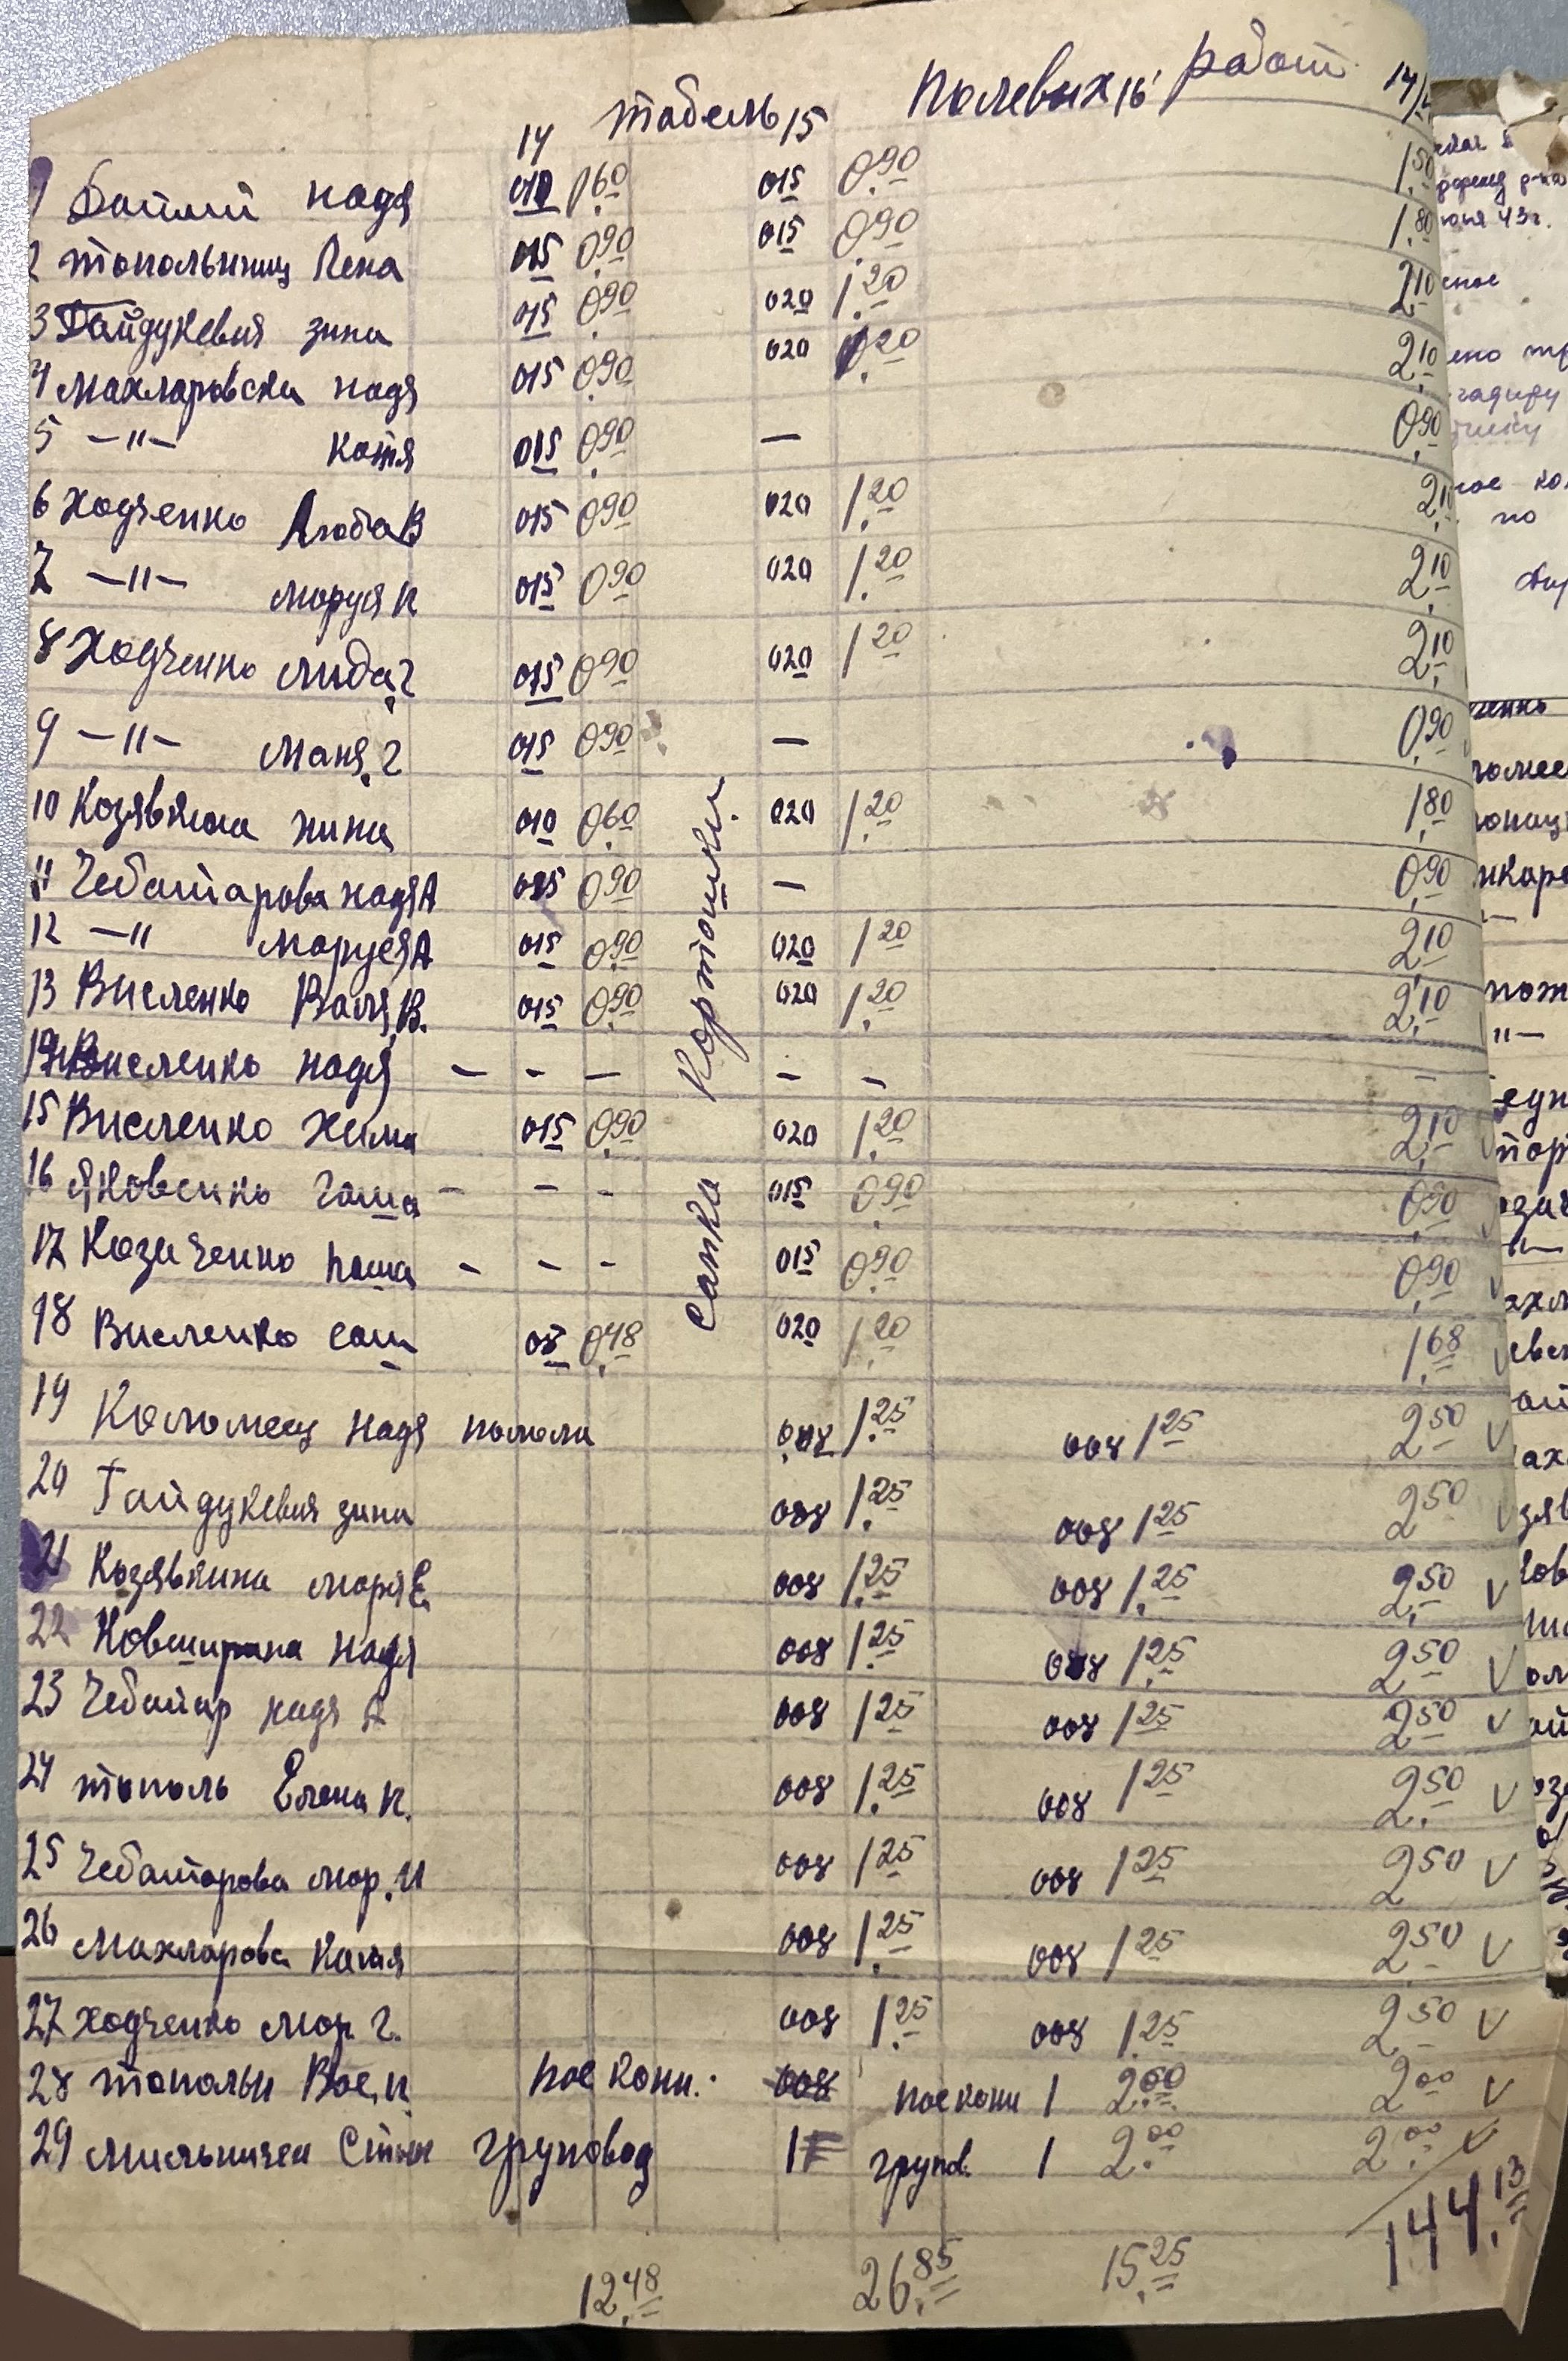 табель полевых работ
14 15 16 14/
1 Баймій Надя 010 0.60 015 0.90 1.50
2 Топольниц Лена 015 0.90 015 0.90 1.80
3 Гайдукевич Зина 015 0.90 020 1.20 2.10
4 Махларовска Надя 015 0.90 020 1.20 2.10
5 —"— Катя 015 0.90 — 0.90
6 Ходченко Люба В 015 0.90 020 1.20 2.10
7 —"— Маруся К 015 0.90 020 1.20 2.10
8 Ходченко Лида Г 015 0.90 020 1.20 2.10
9 —"— Маня Г 015 0.90 — 0.90
10 Козявкина Нина 010 0.60 020 1.20 1.80
11 Чеботарова Надя А 015 0.90 — 0.90
12 —"— Маруся А 015 0.90 020 1.20 2.10
13 Висленко Валя В. 015 0.90 020 1.20 2.10
14 Висленко Надя — — — — — —
15 Висленко Хима 015 0.90 020 1.20 2.10
16 Яковенко Гаша — — — 015 0.90 0.90
17 Козаченко Паша — — — 015 0.90 0.90
18 Висленко Саш 08 0.48 020 1.20 1.68 V
Сапка Картошки
19 Коломеец Надя пололи 008 1.25 008 1.25 2.50 V
20 Гайдукевич Зина 008 1.25 008 1.25 2.50 V
21 Козявкина Мария Е. 008 1.25 008 1.25 2.50 V
22 Надя 008 1.25 008 1.25 2.50 V
23 Чеботар Надя А 008 1.25 008 1.25 2.50 V
24 Тополь Елена К. 008 1.25 008 1.25 2.50 V
25 Чеботарова Мар. И 008 1.25 008 1.25 2.50 V
26 Махларовс Катя 008 1.25 008 1.25 2.50 V
27 Ходченко Мар. Г. 008 1.25 008 1.25 2.50 V
28 Топольн Вас. К. пас кони. 008 пас кони 1 2.00 2.00 V
29 Мильничен Степ груповод 1 групов. 1 2.00 2.00 V
144.13
12.48 26.85 15.25